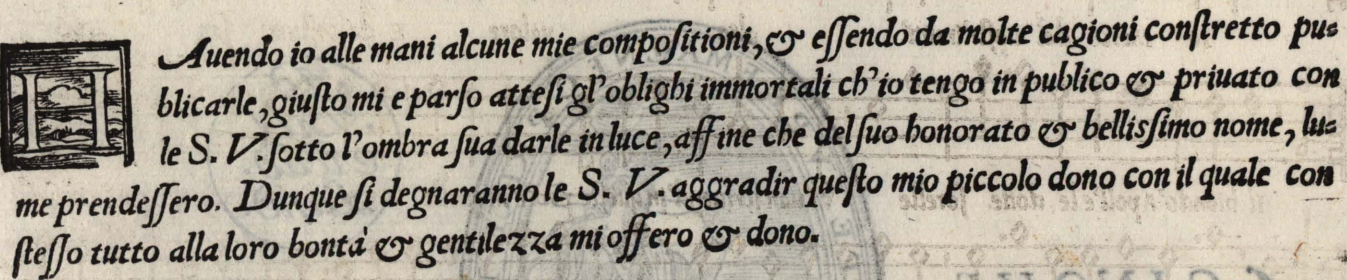 HAuendo io alle mani alcune mie compoſitioni, & eſſendo da molte cagioni conſtretto pu-
blicarle, giuſto mi e parſo atteſi gl'oblighi immortali ch'io tengo in publico & priuato con
le S. V. ſotto l'ombra ſua darle in luce, affine che del ſuo honorato & belliſſimo nome, lu-
me prendeſſero. Dunque ſi degnaranno le S. V. aggradir queſto mio piccolo dono con il quale con
ſteſſo tutto alla loro bontà & gentilezza mi offero & dono.